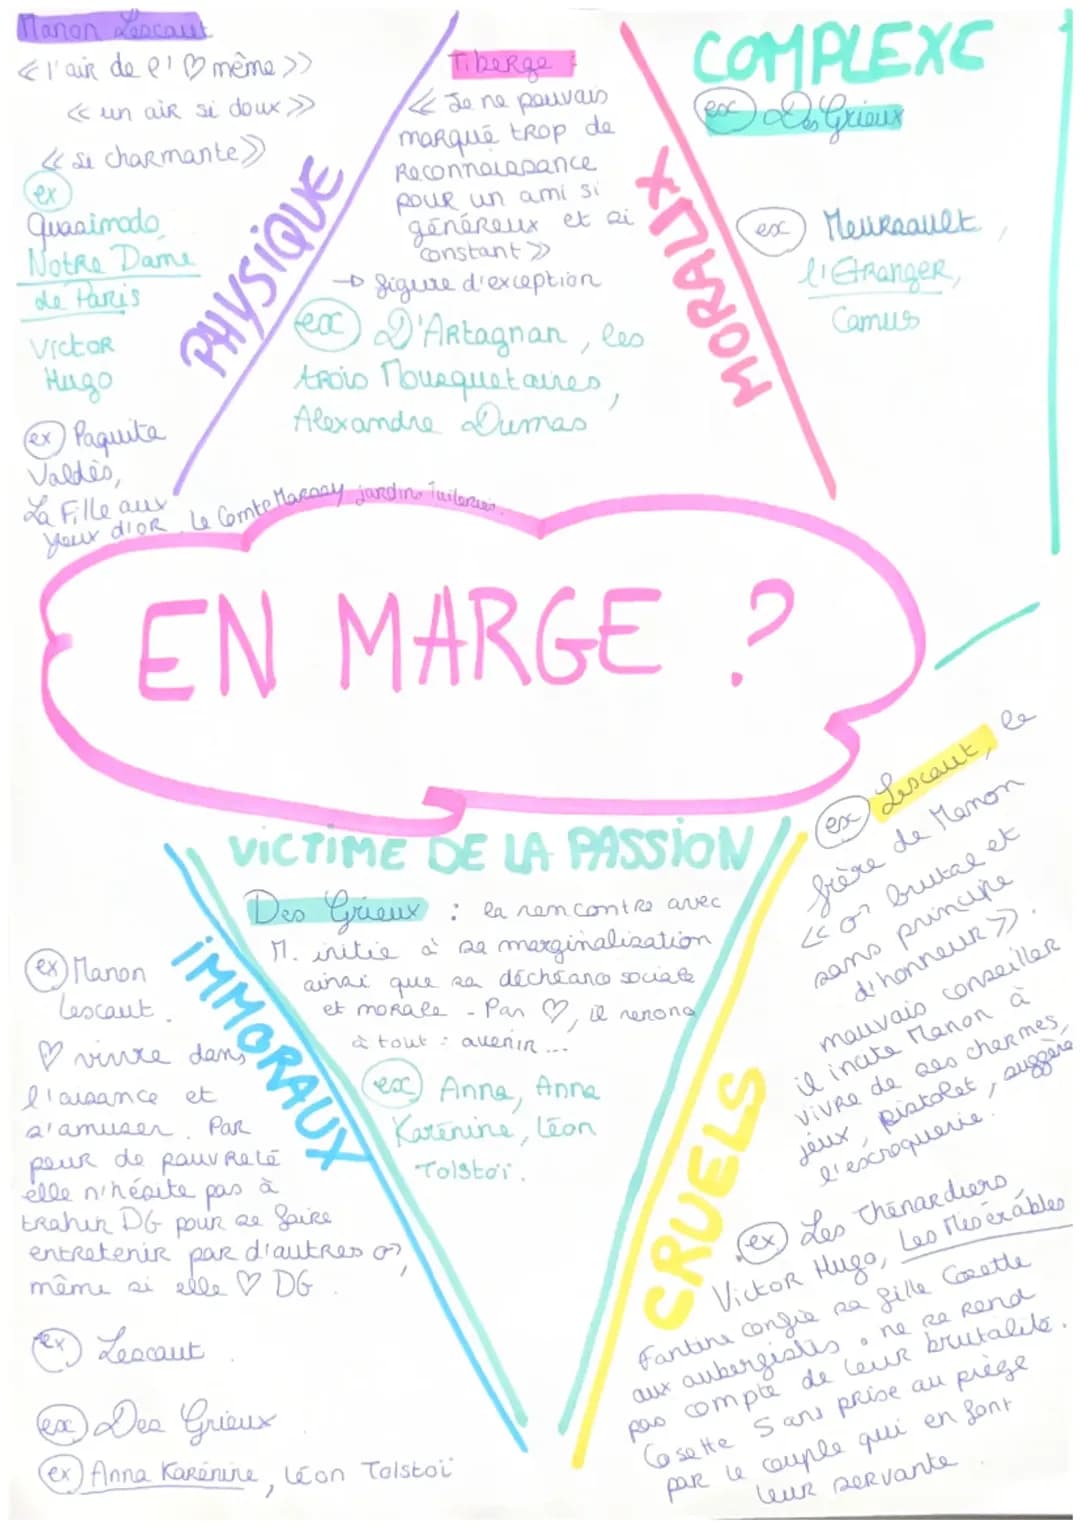 Manon Lescaut
« l'air de l'♡ même »
« un air si doux »
« si charmante »
ex
Quasimodo
Notre Dame
de Paris
Victor
Hugo
ex Paquita
Valdès,
La Fille aux
yeux d'or. Le Comte Marsay jardins Tuileries.
PHYSIQUE
Tiberge :
« Je ne pouvais
marqué trop de
Reconnaissance
pour un ami si
généreux et si
constant »
→ figure d'exception
ex D'Artagnan, les
trois Mousquetaires,
Alexandre Dumas
MORAUX
COMPLEXE
ex Des Grieux
ex Meursault,
l'Etranger,
Camus
EN MARGE ?
VICTIME DE LA PASSION
Des Grieux : la rencontre avec
M. initie à sa marginalisation
ainsi que sa déchéance sociale
et morale - Par ♡, il renonc
à tout : avenir ...
ex Anna, Anna
Karénine, Léon
Tolstoï.
IMMORAUX
ex Manon
Lescaut.
♡ vivre dans
l'aisance et
s'amuser. Par
peur de pauvreté
elle n'hésite pas à
trahir DG pour se faire
entretenir par d'autres
même si elle ♡ DG.
ex Lescaut.
ex Des Grieux
ex Anna Karénine, Léon Tolstoï
CRUELS
ex Lescaut, le
frère de Manon
brutal et
sans principe
d'honneur ».
mauvais conseiller
il incite Manon à
vivre de ses charmes,
jeux, pistolet, suggère
l'escroquerie.
ex Les Thénardiers
Victor Hugo, Les Misérables
Fantine confie sa fille Cosette
aux aubergistes. ne se rend
pas compte de leur brutalité.
Cosette 5 ans prise au piège
par le couple qui en font
leur servante